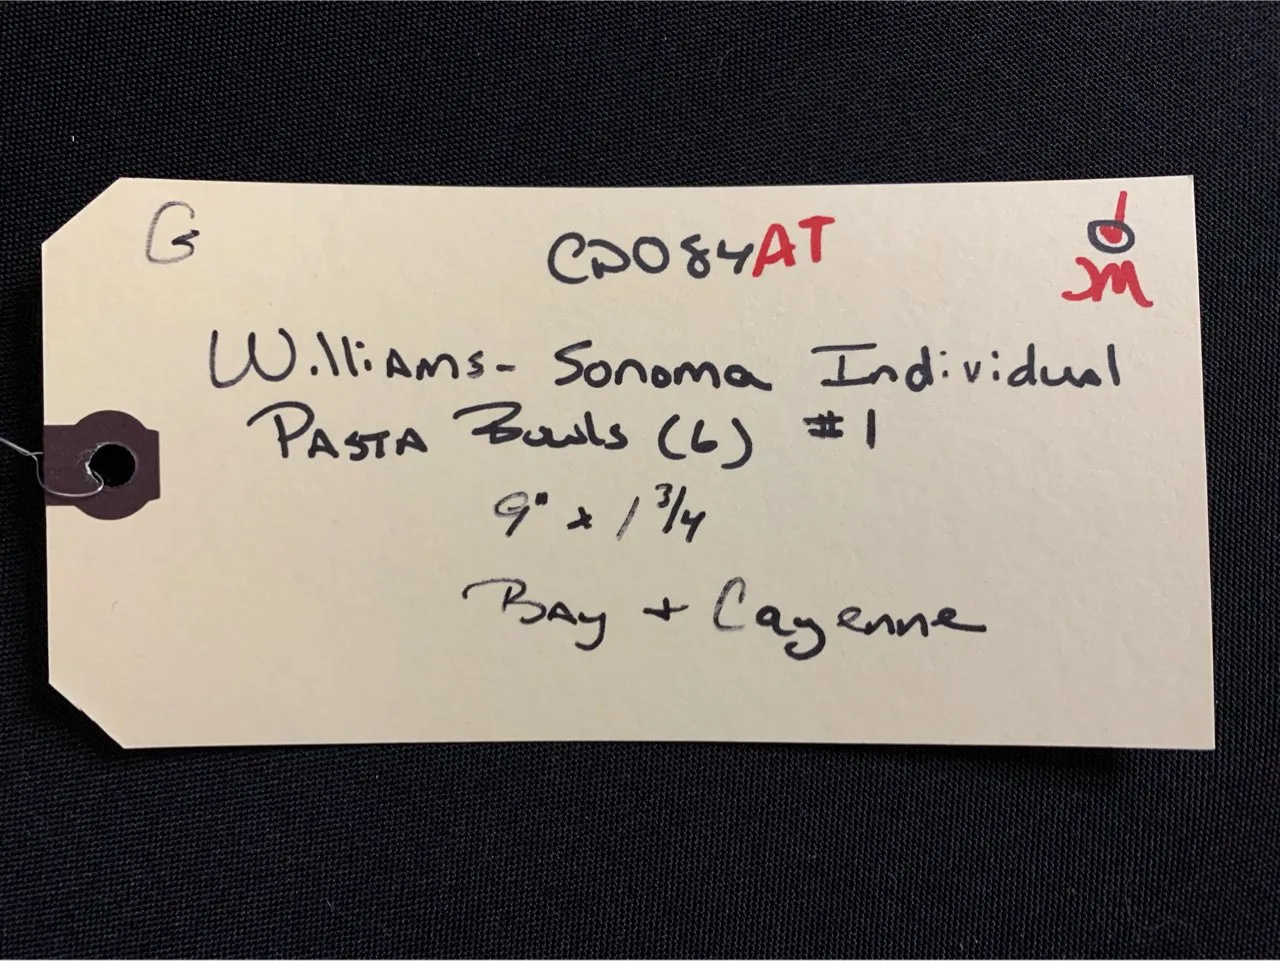 G
CD084AT
M
Williams-Sonoma Individual
Pasta Bowls (6) #1
9" x 1 3/4
Bay + Cayenne